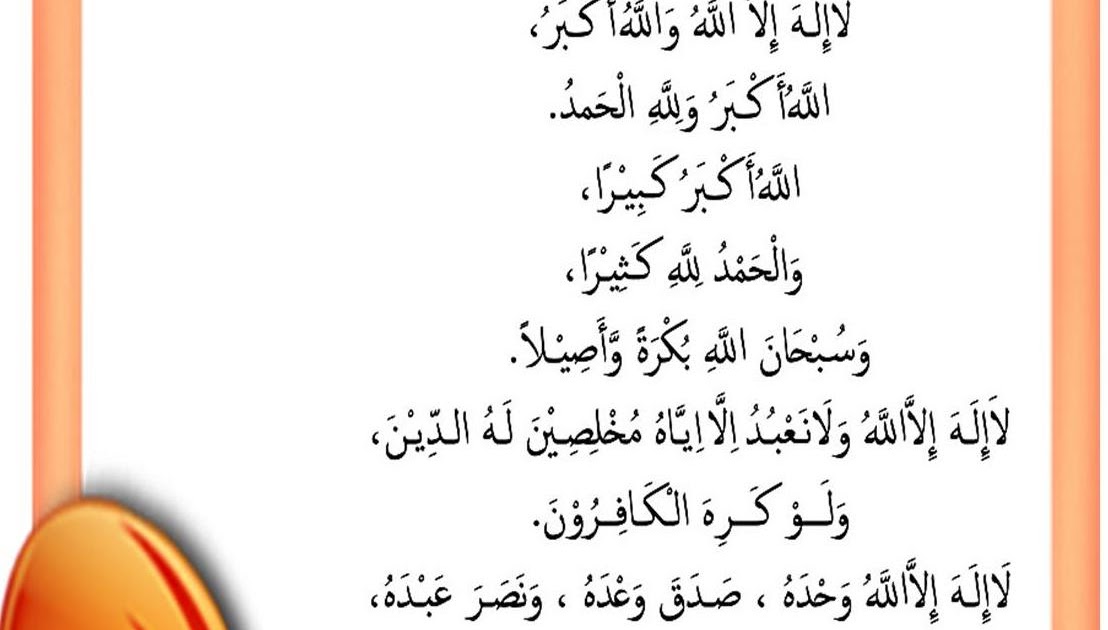 لَاإِلَهَ إِلاَّ اللَّهُ وَاللَّهُ أَكْبَرُ،
اللَّهُ أَكْبَرُ وَلِلَّهِ الْحَمدُ.
اللَّهُ أَكْبَرُ كَبِيْرًا،
وَالْحَمْدُ لِلَّهِ كَثِيْرًا،
وَسُبْحَانَ اللَّهِ بُكْرَةً وَّأَصِيْلاً.
لاَإِلَهَ إِلاَّاللَّهُ وَلَانَعْبُدُ اِلَّا اِيَّاهُ مُخْلِصِيْنَ لَهُ الدِّيْنَ،
وَلَوْ كَرِهَ الْكَافِرُوْنَ.
لَاإِلَهَ إِلاَّاللَّهُ وَحْدَهُ ، صَدَقَ وَعْدَهُ ، وَنَصَرَ عَبْدَهُ،